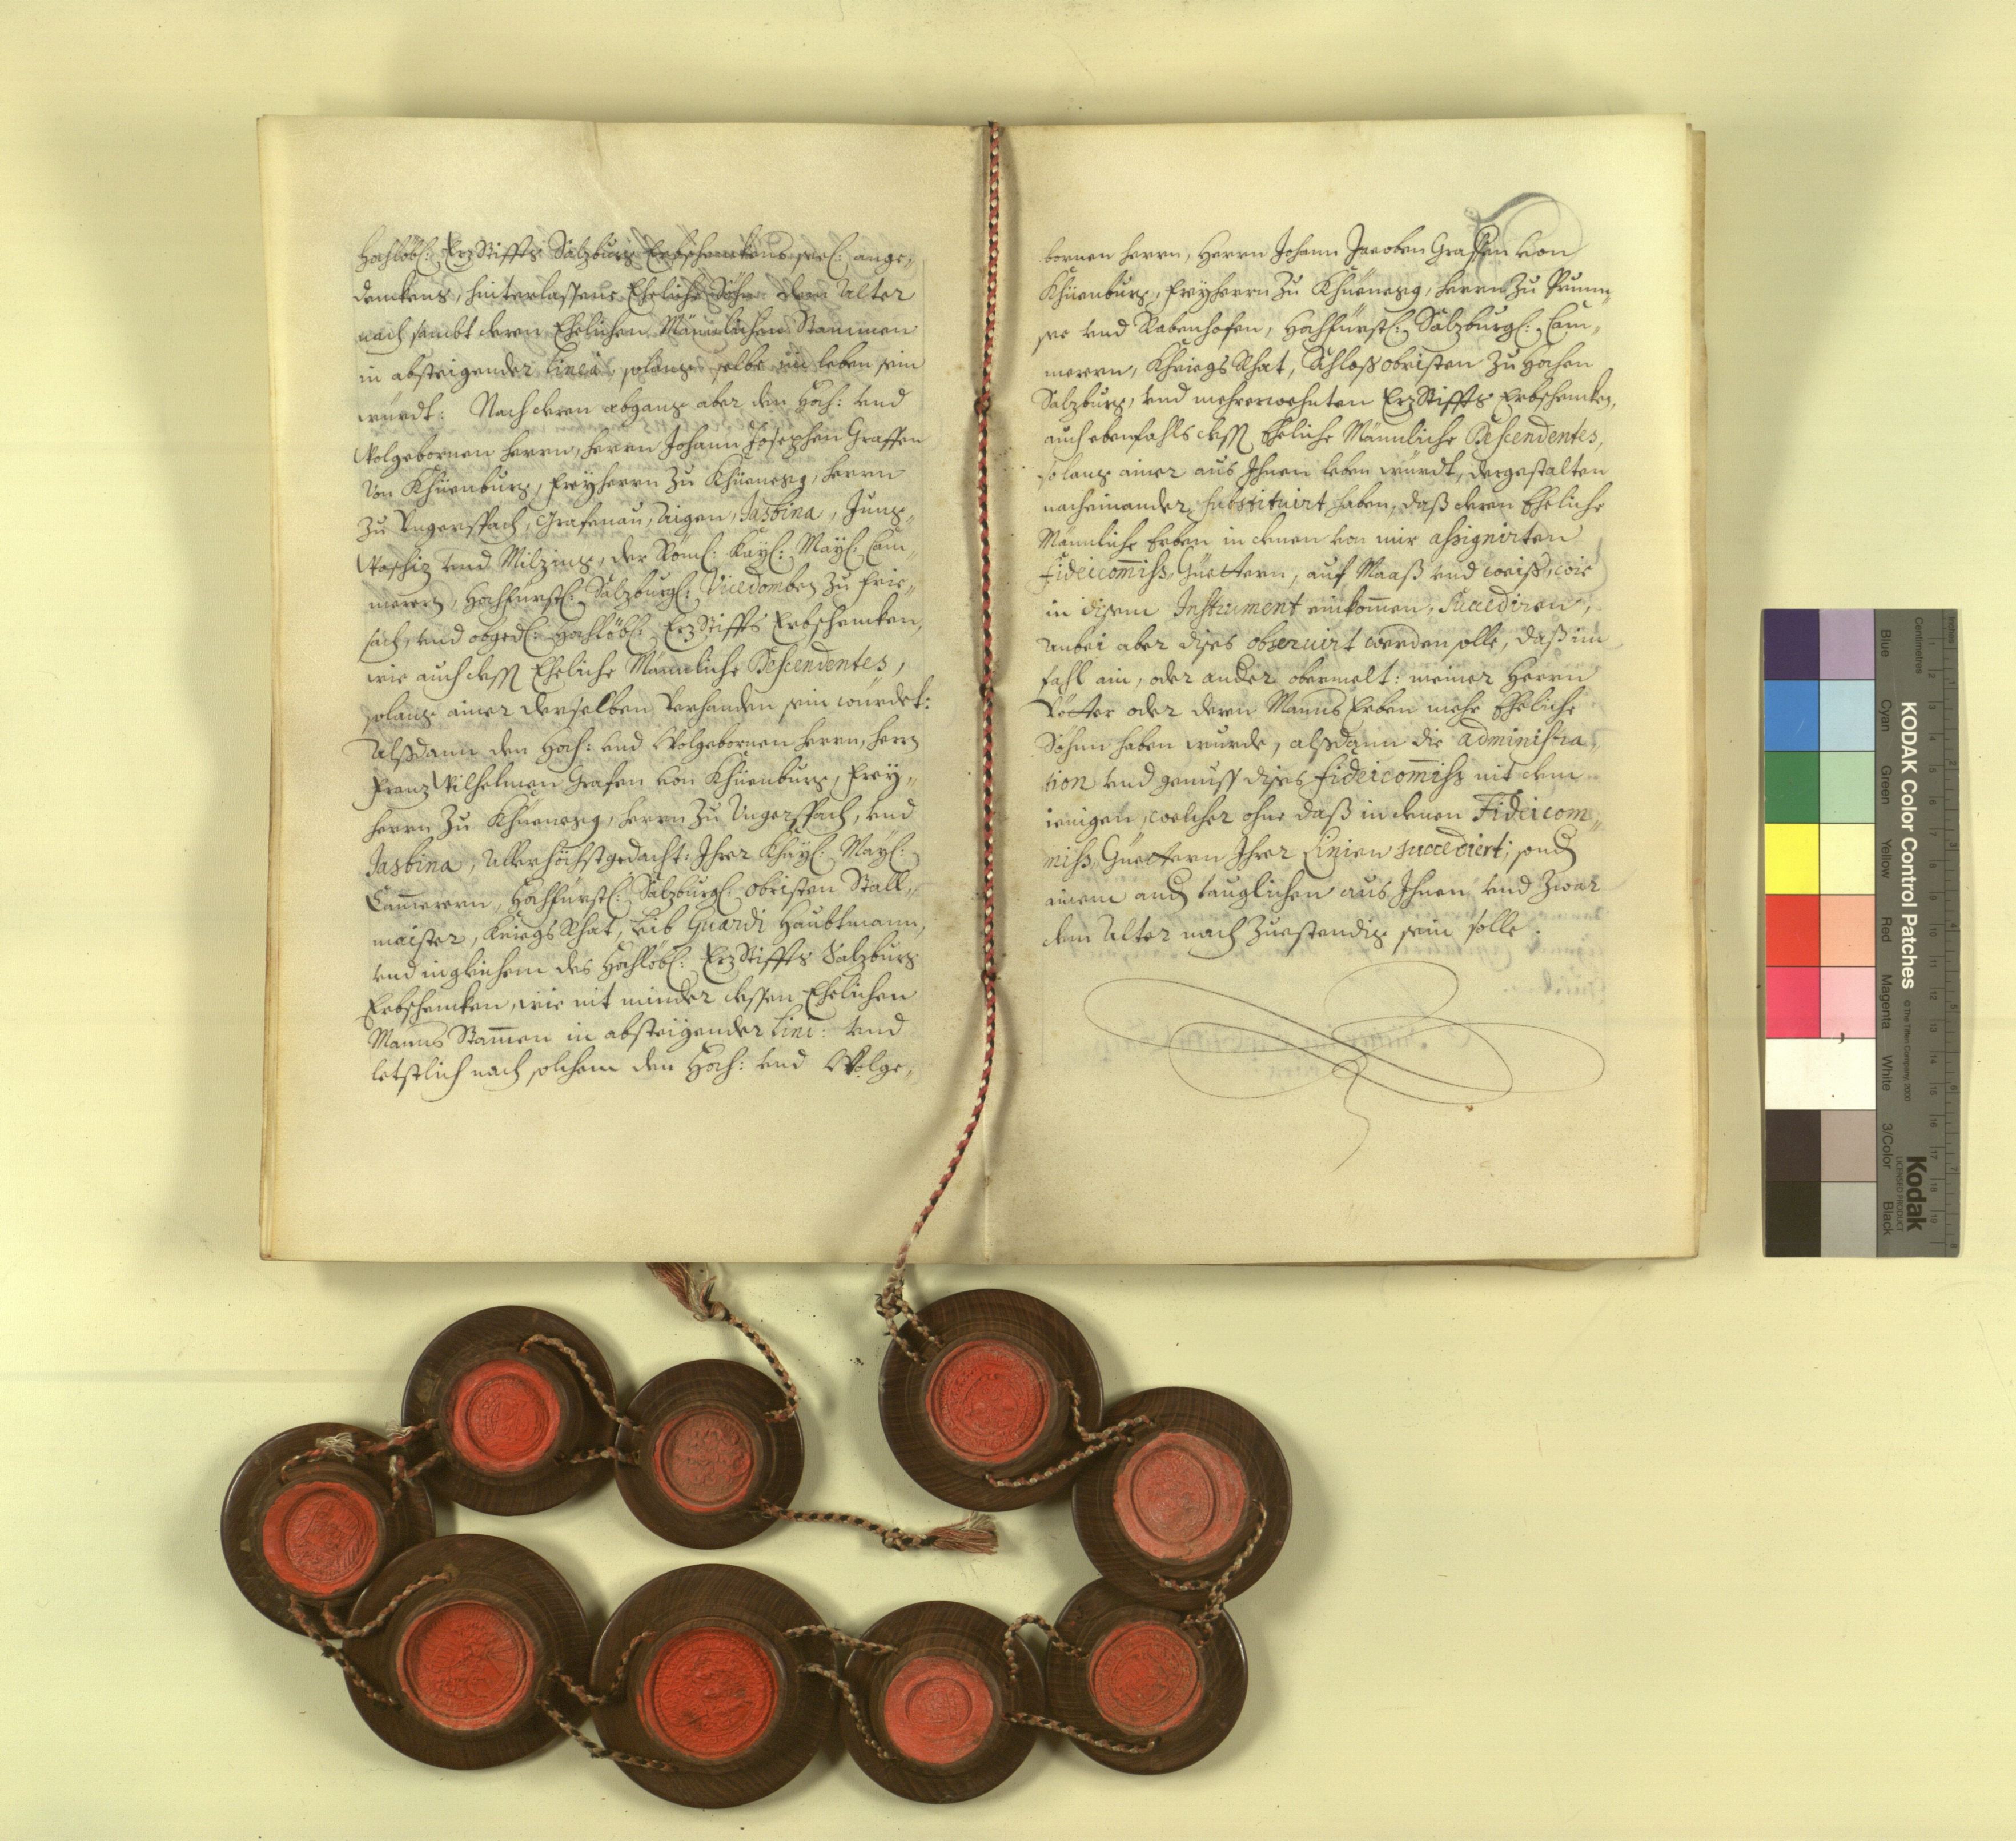 Hochlöbl: ErzStiffts Salzburg Erbschenckens seel: ange„
denckens, hinterlassene Eheliche Söhn dem Alter
nach sambt deren Ehelichen Männlichen Stammen
in absteigender Linea, solang selbe im leben sein
würdt: Nach deren abgang aber den Hoch: vnd
Wolgebornen Herrn, Herrn Johann Josephen Graffen
von Khüenburg, Freyherrn zu Khüenegg, Herrn
zu Vngerspach, Grafenau, Aigen, Jasbina, Jung„
Woschiz vnd Milzing, der Röml: Kayl: Mayl: Cam„
merern, Hochfürstl: Salzburgl: Vicedomben zu Frie„
sach, vnd obgedl: Hochlöbl: ErzStiffts Erbschencken,
wie auch dess Eheliche Männliche Descendentes,
solang ainer derselben Verhanden sein würdet:
Alssdann den Hoch: vnd Wolgebornen Herrn, Herrn
Franz Wilhelmen Grafen von Khüenburg, Frey„
herrn zu Khüenegg, Herrn zu Vngerspach, vnd
Jasbina, Allerhöchstgedacht: Ihrer Khayl: Mayl:
Cammerern, Hochfürstl: Salzburgl: Obristen Stall„
maister, Kriegs Rhat, Leib Guardi Haubtmann,
vnd ingleichem des Hochlöbl: ErzStiffts Salzburg
Erbschencken, wie nit minder dessen Ehelichen
Manns Stammen in absteigender Lini: Vnd
letstlich nach solchem den Hoch: vnd Wolge„
bornen Herrn, Herrn Johann Jacoben Graffen von
Khüenburg, Freyherrn zu Khüenegg, Herrn zu Prunn„
see vnd Rabenhofen, Hochfürstl: Salzburgl: Cam„
merern, Khriegs Rhat, Schloß obristen zu Hochen
Salzburg, vnd mehrerwehnten ErzStiffts Erbschencken,
auch ebenfahls dess Eheliche Männliche Descendentes,
solang ainer aus Ihnen leben würdt, dergestalten
nacheinander substituirt haben, daß deren Eheliche
Männliche Erben in denen von mir assignirten
Fideicommiss Güettern, auf Maaß vnd weiß, wie
in disem Instrument einkommen, succediren,
Anbei aber dises obseruirt werden solle, daß im
fahl ain, oder ander obermelt: meiner Herrn
Vötter oder deren Manns Erben mehr Eheliche
Söhne haben wurde, alßdann die administra„
tion vnd genuss dises fideicommiss nit dem
ienigen, welcher ohne daß in denen Fideicom„
miss Güettern Ihrer Linien succediert, sond
ainem and tauglichen aus Ihnen vnd zwar
dem Alter nach zuestendig sein solle.
KODAK Color Control Patches © The Tiffen Company, 2000
Kodak
LICENSED PRODUCT
Inches
Centimetres
Blue
Cyan
Green
Yellow
Red
Magenta
White
3/Color
Black